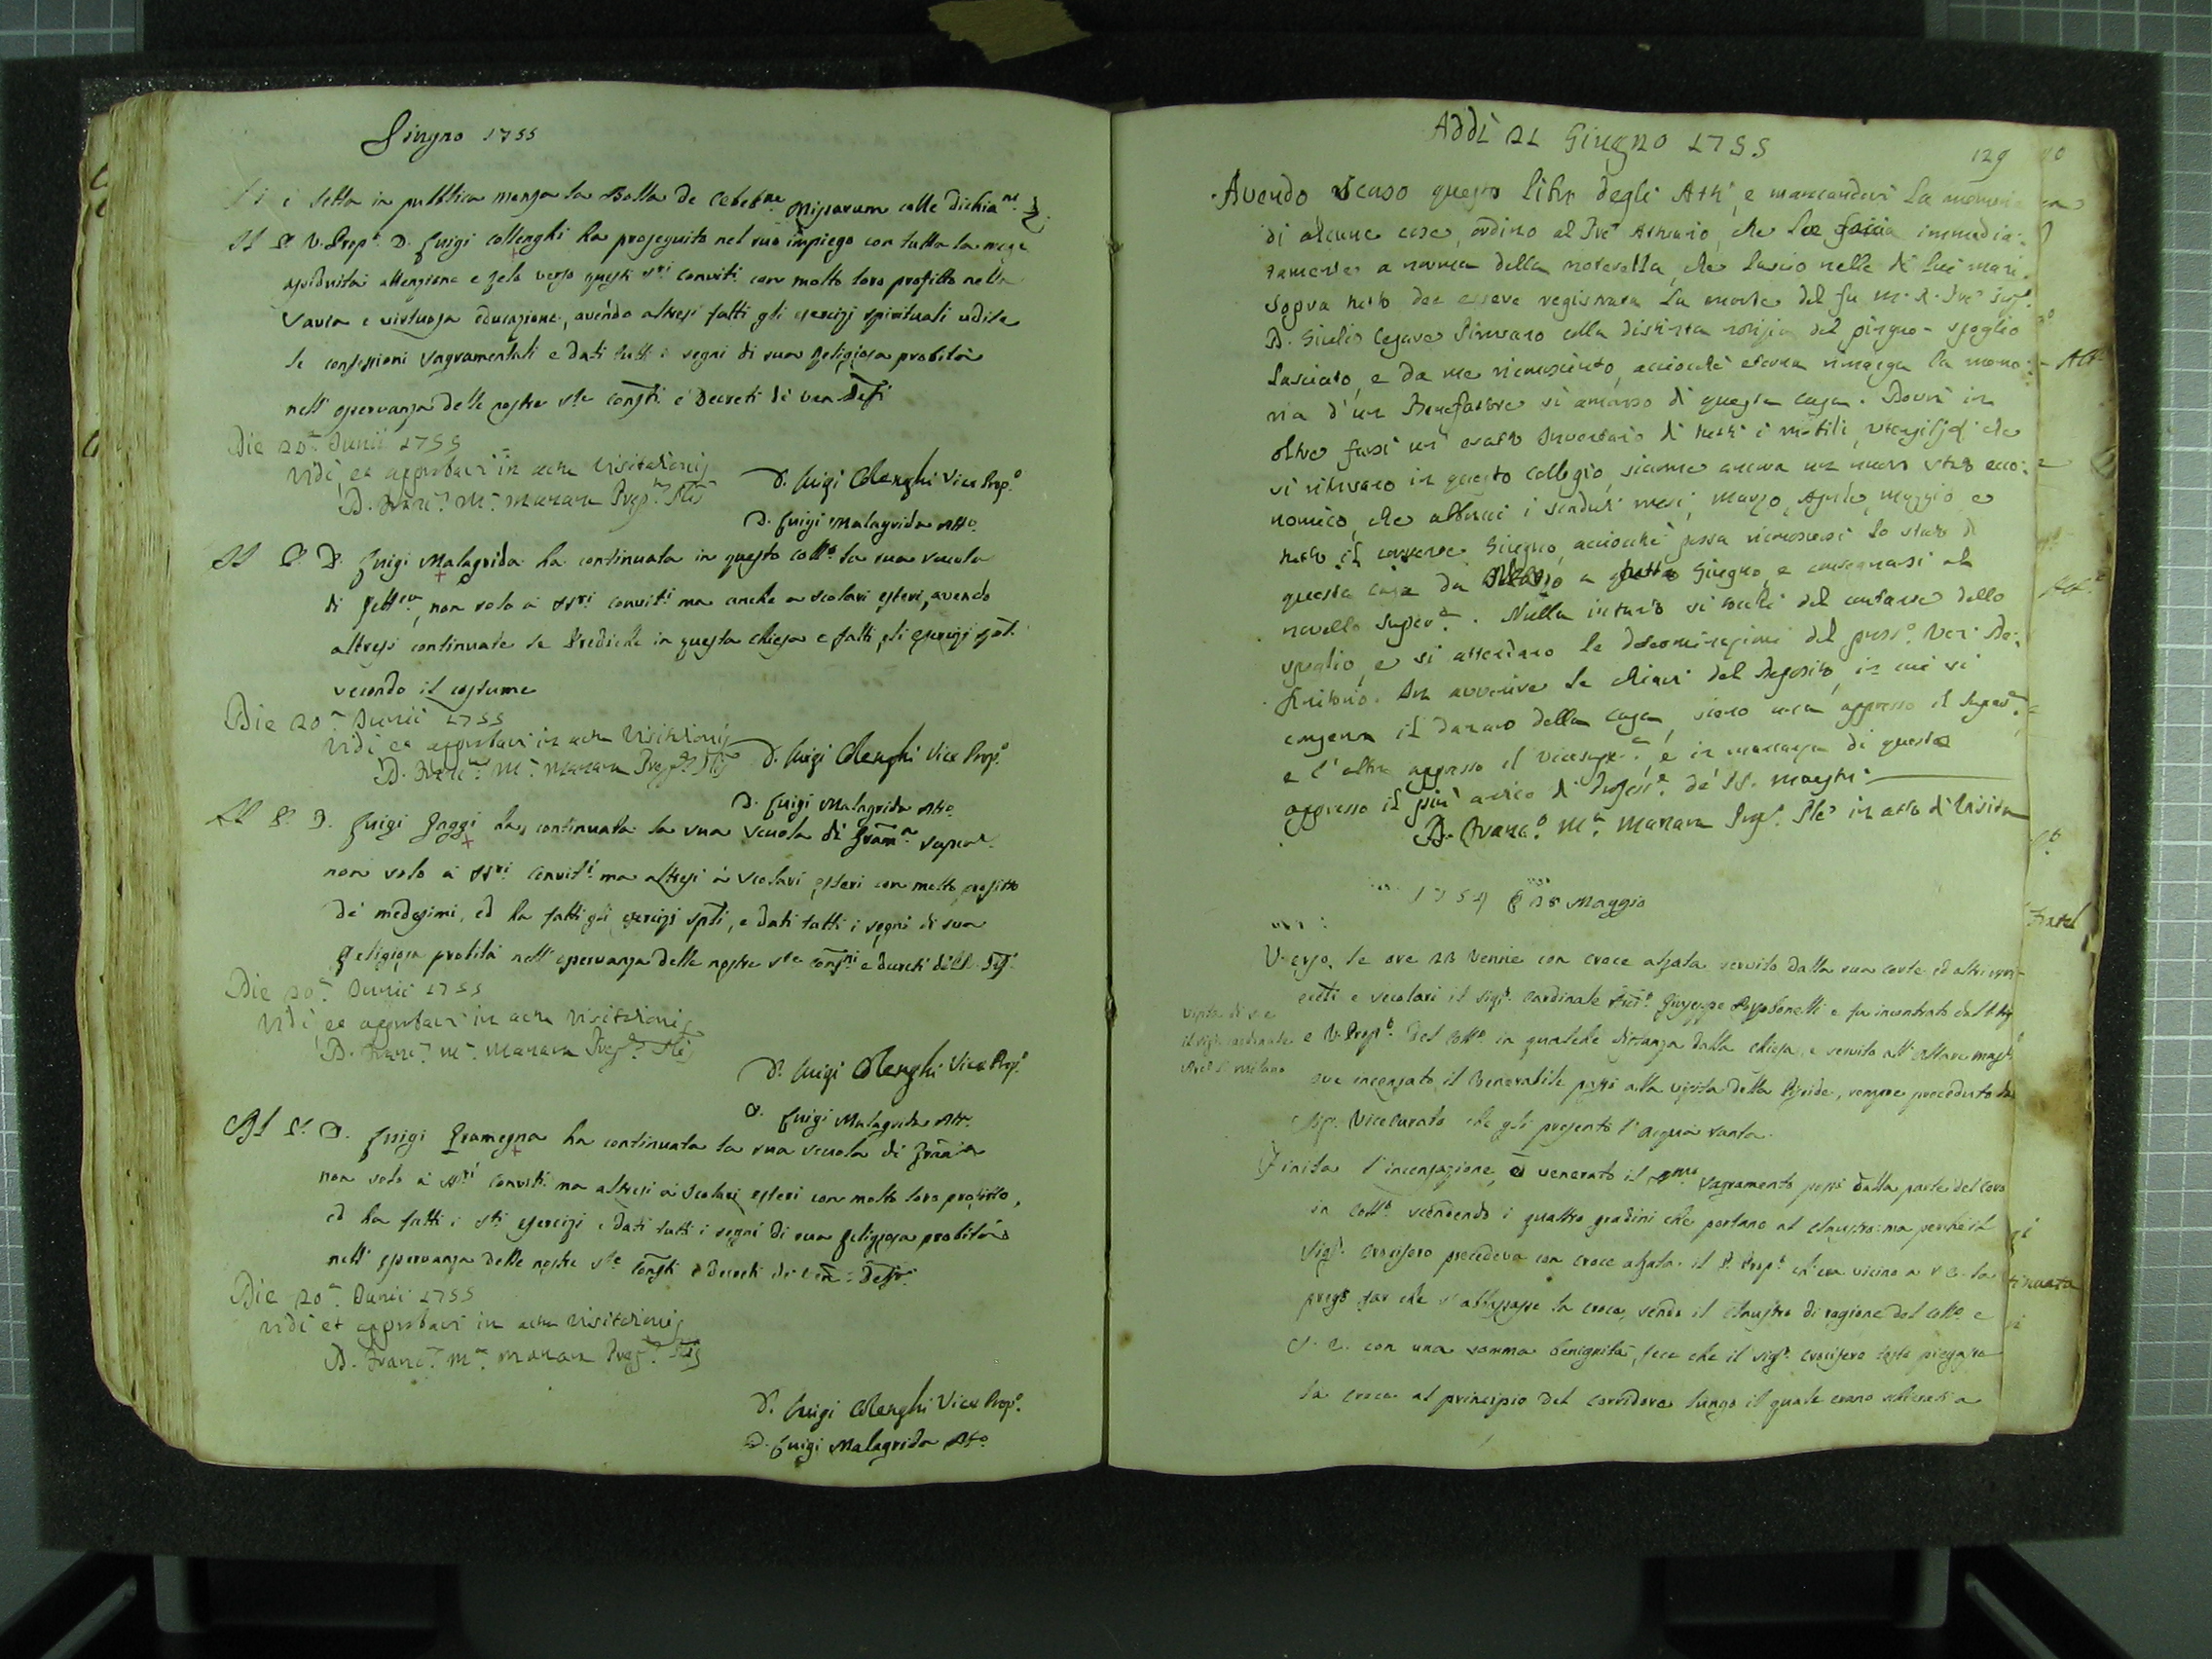 Giugno 1755
Si è letta in pubblica mensa la Bolla de Celebne Missarum colle dichiane
Il P. V. Prepo. D. Luigi Collenghi ha proseguito nel suo impiego con tutta la
assiduità attenzione e zelo verso questi sri convitti con molto loro profitto nella
savia e virtuosa educazione, avendo altresi fatti gli esercizj spirituali udite
le confessioni sagramentali e dati tutti i segni di sua Religiosa probità
nell' osservanza delle nostre ste Constti e Decreti de ven Deffi
Die 20a Junii 1755
Vidi, et approbavi in actu Visitationis
D. Franc.s M.a Manara Prep.s Glis
D. Luigi Colenghi Vice Prep.o
D. Luigi Malagrida Atto.
Il P. D. Luigi Malagrida ha continuata in questo Collo la sua scuola
di Rettca, non solo a ssri convitti ma anche a scolari esteri, avendo
altresi continuate le Prediche in questa chiesa e fatti gli esercizj spti.
secondo il costume
Die 20a Junii 1755
Vidi et approbavi in actu Visitationis
D. Franc.s M.a Manara Prep.s Glis
D. Luigi Colenghi Vice Prep.o
D. Luigi Malagrida Atto.
Il P. D. Luigi Gaggi ha continuata la sua scuola di Gram.a super.
non solo a ssri Convitti ma altresi a scolari esteri con molto profitto
de' medesimi, ed ha fatti gli esercizj spti, e dati tutti i segni di sua
Religiosa probità nell' osservanza delle nostre ste consni e decreti
Die 20a Junii 1755
Vidi et approbavi in actu Visitationis
D. Franc.s M.a Manara Prep.s Glis
D. Luigi Colenghi Vice Prep.o
D. Luigi Malagrida Atto.
Il P. D. Luigi Gramegna ha continuata la sua scuola di Gram.a
non solo a ssri Convitti ma altresi a Scolari esteri con molto loro profitto,
ed ha fatti i sti esercizj e dati tutti i segni di sua Religiosa probità
nell' osservanza delle nostre ste Constti e Decreti de ven: Deffi.
Die 20a Junii 1755
Vidi et approbavi in actu Visitationis
D. Franc.s M.a Manara Prep.s Glis
D. Luigi Colenghi Vice Prep.o
D. Luigi Malagrida Atto.
Addì 21 Giugno 1755
129
Avendo scorso questo libro degli Atti, e mancandovi la memoria
di alcune cose, ordino al Pre Attuario, che le faccia immedia:
tamente a norma della noterella, che lascio nelle di lui mani.
Sopra tutto dee essere registrata la morte del fu M. R. Pre
D. Giulio Cesare colla distinta notizia del pingue spoglio
lasciato, e da me riconosciuto, acciocchè eterna rimanga la memo:
ria d'un Benefattore sì amoroso di questa casa. Dovrà in
oltre farsi un' esatto Inventario di tutti i mobili, utensilj che
si ritrovano in questo Collegio, siccome ancora un nuovo stato eco:
nomico, che abbracci i scaduti mesi, Marzo, Aprile, Maggio e
tutto il corrente Giugno, acciocchè possa riconoscersi lo stato di
questa casa da a tutto Giugno, e consegnarsi al
novello Super.e. Nulla intanto si tocchi del contante dello
spoglio, e si attendano le determinazioni del pross.o Ven: De:
finitorio. In avvenire le chiavi del deposito, in cui si
conserva il danaro della casa, siano una appresso il Super.e
e l'altra appresso il Vicesup.e, e in mancanza di questo
appresso il più antico di Profess.e de' PP. Maestri.
D. Franc.o M.a Manara Prep.o Gle in atto di Visita
1754 28 Maggio
Verso le ore 23 venne con croce alzata servito dalla sua corte ed altri
e secolari il Sigr. Cardinale Giuseppe Pozzobonelli e fu incontrato dal
e V. Prepo. del Collo in qualche distanza dalla chiesa, e servito all' Altare magre
ove incensato il Venerabile passò alla visita della Pisside, sempre preceduto dal
Sigr. Vicecurato che gli presentò l'acqua santa.
Visita di S. E.
il Sigr. Cardinale
Arco di Milano
Finita l'incensazione, e venerato il Smo Sagramento passò dalla parte del Coro
in Collo scendendo i quattro gradini che portano al claustro: ma perchè il
Sigr. Crocifero precedeva con croce alzata. il P. Prepo. ch'era vicino a S. E. la
pregò far che s'abbassasse la croce, sendo il claustro di ragione del Collo. e
S. E. con una somma benignità, fece che il sigr. crocifero tosto piegasse
la croce al principio del corridore lungo il quale erano schierati a